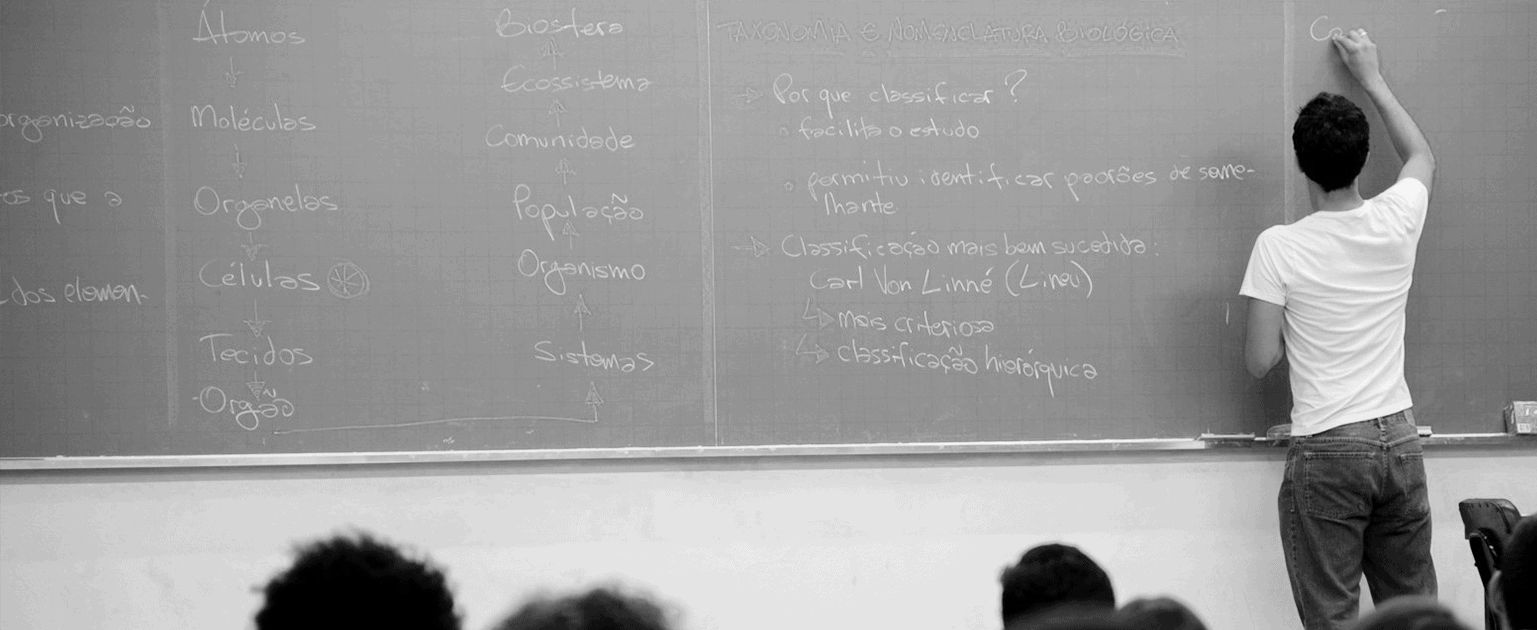 organização
os que a
dos elemen-
Átomos
Moléculas
Organelas
Células
Tecidos
Orgão
Biosfera
Ecossistema
Comunidade
População
Organismo
Sistemas
TAXONOMIA E NOMENCLATURA BIOLÓGICA
Por que classificar?
facilita o estudo
permitiu identificar padrões de seme-
lhante
Classificação mais bem sucedida:
Carl Von Linné (Lineu)
mais criteriosa
classificação hierárquica
Co